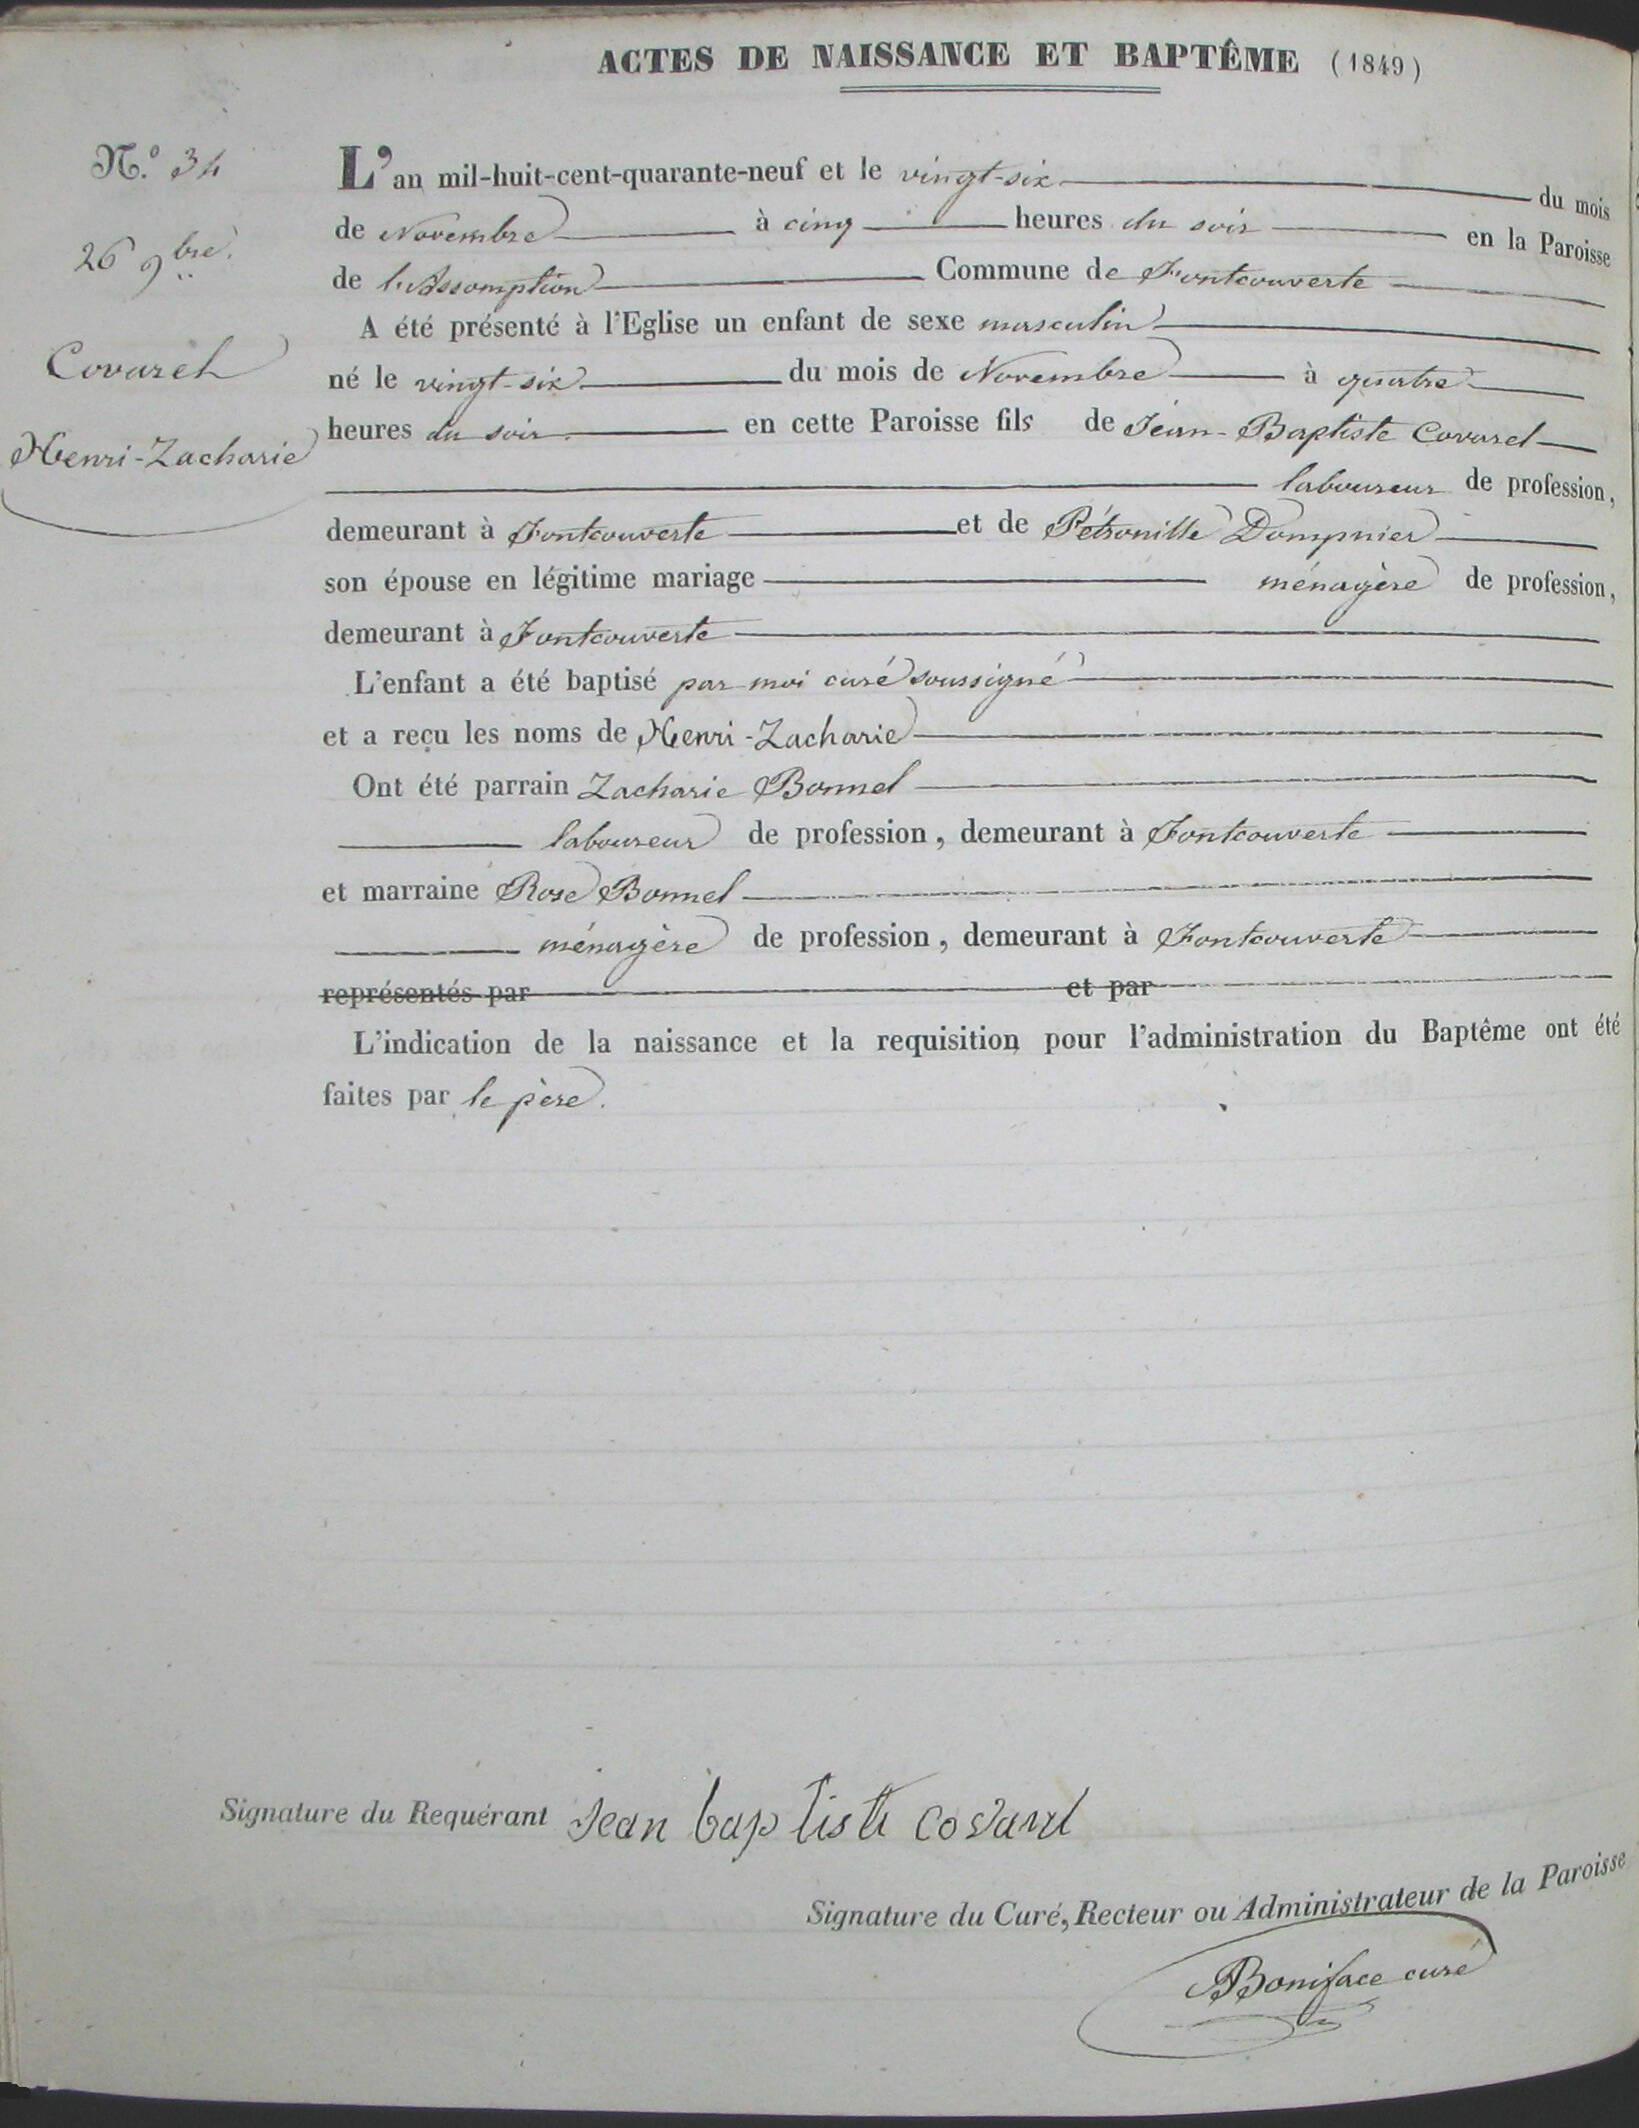 ACTES DE NAISSANCE ET BAPTÊME (1849)
N.º 34
26 9bre.
Covarel
Henri-Zacharie
L'an mil-huit-cent-quarante-neuf et le vingt-six du mois
de Novembre à cinq heures du soir en la Paroisse
de l'Assomption Commune de Fontcouverte
A été présenté à l'Eglise un enfant de sexe masculin
né le vingt-six du mois de Novembre à quatre
heures du soir en cette Paroisse fils de Jean-Baptiste Covarel
laboureur de profession,
demeurant à Fontcouverte et de Pétronille Dompnier
son épouse en légitime mariage ménagère de profession,
demeurant à Fontcouverte
L'enfant a été baptisé par moi curé soussigné
et a reçu les noms de Henri-Zacharie
Ont été parrain Zacharie Bonnel
laboureur de profession, demeurant à Fontcouverte
et marraine Rose Bonnel
ménagère de profession, demeurant à Fontcouverte
représentés par et par
L'indication de la naissance et la requisition pour l'administration du Baptême ont été
faites par le père.
Signature du Requérant Jean baptiste covarel
Signature du Curé, Recteur ou Administrateur de la Paroisse
Boniface curé